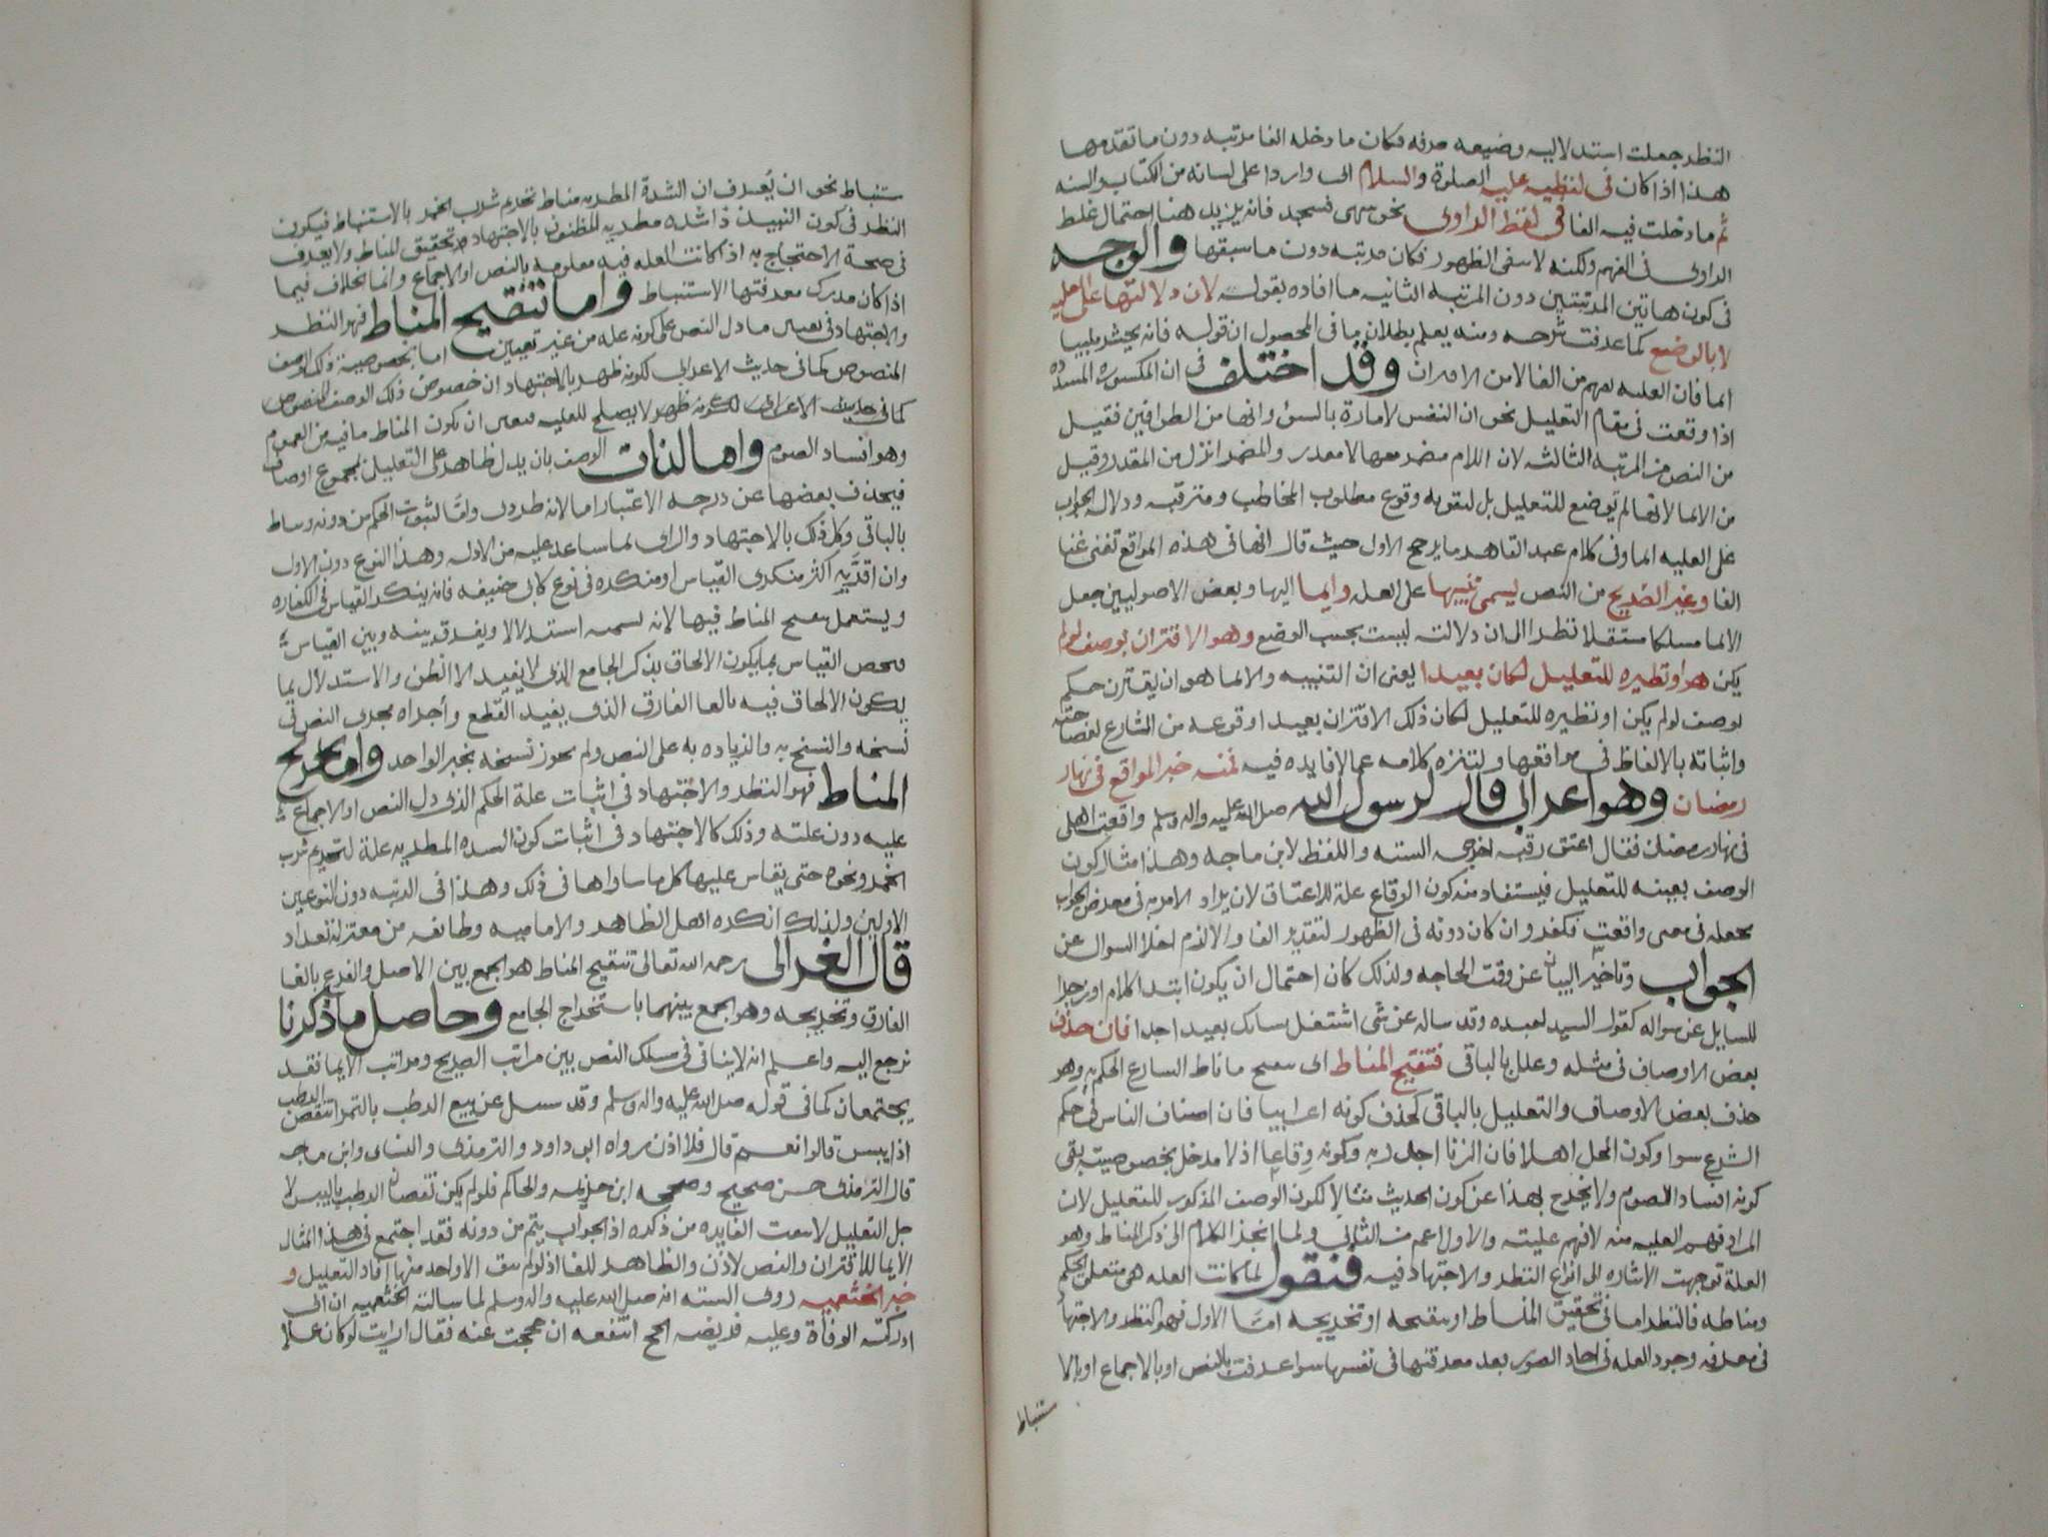 النظر جعلت استدلاليه وضيعه صرفه فكان ما دخله الفا مرتبه دون ما تقدمها
هذا اذا كان في لفظه عليه الصلوة والسلام اى واردا على لسانه من الكتاب والسنه
ثم ما دخلت فيه الفا في لفظ الراوى نحو سهى فسجد فانه يزيد هنا احتمال غلط
الراوى في الفهم ولكنه لا ينفى الظهور فكان مرتبه دون ما سبقها والوجه
في كون هاتين المرتبتين دون المرتبه الثانيه ما افاده بقوله لان دلالتها على العليه
لا بالوضع كما عرفت شرحه ومنه يعلم بطلان ما في المحصول ان قوله فانه يحشر ملبيا
ايما فان العليه تفهم من الفا لا من الاقتران وقد اختلف في ان المكسوره المشدده
اذا وقعت في مقام التعليل نحو ان النفس لامارة بالسوء وانها من الطوافين فقيل
من النص من المرتبه الثالثه لان اللام مضمر معها لا مقدر والمضمر انزل من المقدر وقيل
من الايما لانها لم توضع للتعليل بل لتقويه وقوع مطلوب المخاطب ومترقبه ودلاله الجواب
على العليه ايما وفي كلام عبد القاهر ما يرجح الاول حيث قال انها في هذه المواقع تغنى غنا
الفا وغير الصريح من النص يسمى تنبيها على العله وايما اليها وبعض الاصوليين جعل
الايما مسلكا مستقلا نظرا الى ان دلالته ليست بحسب الوضع وهو الاقتران بوصف لو لم
يكن هو او نظيره للتعليل لكان بعيدا يعنى ان التنبيه والايما هو ان يقترن حكم
بوصف لو لم يكن او نظيره للتعليل لكان ذلك الاقتران بعيد او قوعه من الشارع لفصاحته
واثباته بالالفاظ في مواقعها ولتنزه كلامه عما لا فايده فيه فمنه خبر المواقع في نهار
رمضان وهو اعرابى قال لرسول الله صلى الله عليه واله وسلم واقعت اهلى
في نهار رمضان فقال اعتق رقبه اخرجه السته واللفظ لابن ماجه وهذا مثال كون
الوصف بعينه للتعليل فيستفاد منه كون الوقاع علة للاعتاق لان يراد الامر به في معرض الجواب
يجعله في معنى واقعت فكفر وان كان دونه في الظهور لتقدير الفا والا لزم اخلا السوال عن
الجواب وتاخير البيان عن وقت الحاجه ولذلك كان احتمال ان يكون ابتدا كلام او زجرا
للسايل عن سواله كقول السيد لعبده وقد ساله عن شى اشتغل بشانك بعيدا جدا فان حذف
بعض الاوصاف في مثله وعلل بالباقى فتنقيح المناط اى تنقيح ما ناط الشارع الحكم به وهو
حذف بعض الاوصاف والتعليل بالباقى كحذف كونه اعرابيا فان اصناف الناس في حكم
الشرع سوا وكون المحل اهلا فان الزنا اجدر به وكونه وقاعا اذ لا مدخل بخصوصيته بقى
كونه افساد الصوم ولا يخرج بهذا عن كون الحديث مثالا لكون الوصف المذكور للتعليل لان
المراد فهم العليه منه لا فهم عليته والاول اعم من الثانى ولما انجز الكلام الى ذكر المناط وهو
العلة توجهت الاشاره الى انواع النظر والاجتهاد فيه فنقول لما كانت العله هى متعلق الحكم
ومناطه فالنظر اما في تحقيق المناط او تنقيحه او تخريجه اما الاول فهو النظر والاجتهاد
في معرفه وجود العله في احاد الصور بعد معرفتها في نفسها سوا عرفت بالنص او بالاجماع او بالا
ستنباط
ستنباط نحو ان يعرف ان الشدة المطربه مناط تحريم شرب الخمر بالاستنباط فيكون
النظر في كون النبيذ ذا شده مطربه المظنون بالاجتهاد هو تحقيق المناط ولا يعرف
في صحة الاحتجاج به اذا كانت العله فيه معلومه بالنص او الاجماع وانما الخلاف فيما
اذا كان مدرك معرفتها الاستنباط واما تنقيح المناط فهو النظر
والاجتهاد في تعيين ما دل النص على كونه عله من غير تعيين اما بخصوصية ذلك الوصف
المنصوص كما في حديث الاعرابى لكونه ظهر بالاجتهاد ان خصوص ذلك الوصف المنصوص
كما في حديث الاعرابى لكونه ظهر لا يصلح للعليه فتعين ان تكون المناط ما فيه من العموم
وهو افساد الصوم واما لذات الوصف بان يدل ظاهر على التعليل بمجموع اوصاف
فيحذف بعضها عن درجه الاعتبار اما لانه طردى واما لثبوت الحكم من دونه ويناط
بالباقى وكل ذلك بالاجتهاد والراى لما ساعد عليه من الادله وهذا النوع دون الاول
وان اقر به اكثر منكرى القياس او منكره في نوع كابى حنيفه فانه ينكر القياس في الكفاره
ويستعمل تنقيح المناط فيها لانه يسميه استدلالا ويفرق بينه وبين القياس
فيخص القياس بما يكون الالحاق بذكر الجامع الذى لا يفيد الا الظن والاستدلال بما
يكون الالحاق فيه بالغا الفارق الذى يفيد القطع واجراه مجرى النص في
نسخه والنسخ به والزياده به على النص ولم يجوز نسخه بخبر الواحد واما تخريج
المناط فهو النظر والاجتهاد في اثبات علة الحكم الذى دل النص او الاجماع
عليه دون علته وذلك كالاجتهاد في اثبات كون الشده المطربه علة لتحريم شرب
الخمر ونحوه حتى يقاس عليها كل ما ساواها في ذلك وهذا في الرتبه دون النوعين
الاولين ولذلك انكره اهل الظاهر والاماميه وطائفه من معتزله بغداد
قال الغزالى رحمه الله تعالى تنقيح المناط هو الجمع بين الاصل والفرع بالغا
الفارق وتخريجه وهو الجمع بينهما باستخراج الجامع وحاصل ما ذكرنا
نرجع اليه واعلم انه لا ينافى في مسلك النص بين مراتب الصريح ومراتب الايما فقد
يجتمعان كما في قوله صلى الله عليه واله وسلم وقد سئل عن بيع الرطب بالتمر اينقص الرطب
اذا يبس قالوا نعم قال فلا اذن رواه ابو داود والترمذى والنساى وابن ماجه
قال الترمذى حسن صحيح وصححه ابن خزيمه والحاكم فلو لم يكن نقصان الرطب باليبس لا
جل التعليل لانتفت الفايده من ذكره اذ الجواب يتم من دونه فقد اجتمع في هذا المثال
الايما للاقتران والنص لاذن والظاهر للفا اذ لو لم يبق الا واحد منها افاد التعليل و
خبر الخثعميه روى السته انه صلى الله عليه واله وسلم لما سالته الخثعميه ان ابى
ادركته الوفاة وعليه فريضه الحج اينفعه ان حججت عنه فقال ارايت لو كان على